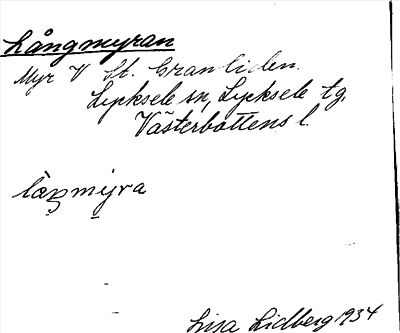 Långmyran
Myr V St. Granliden.
Lycksele sn, Lycksele tg.
Västerbottens l.
låŋmỳra
Lisa Lidberg 1934